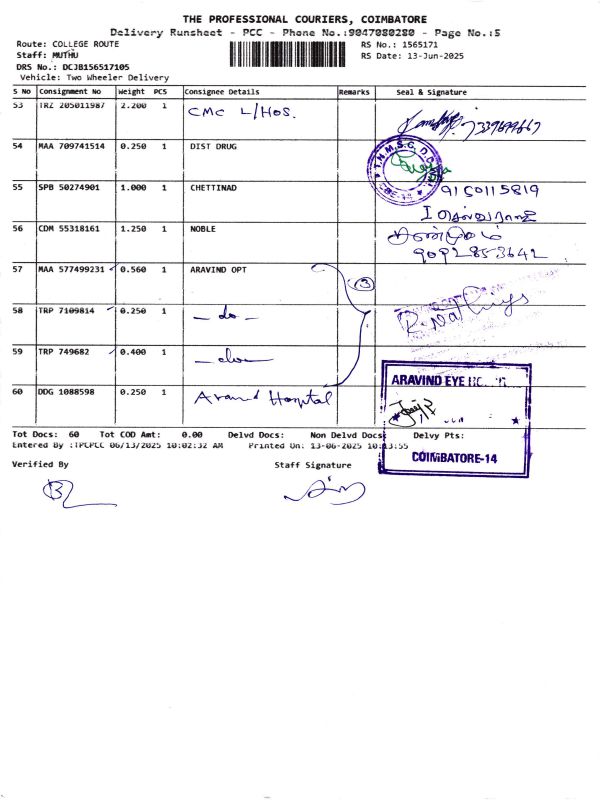 THE PROFESSIONAL COURIERS, COIMBATORE
Delivery Runsheet - PCC - Phone No.:9047080280 - Page No.:5
Route: COLLEGE ROUTE RS No.: 1565171
Staff: MUTHU RS Date: 13-Jun-2025
DRS No.: DCJB156517105
Vehicle: Two Wheeler Delivery
S No Consignment No Weight PCS Consignee Details Remarks Seal & Signature
53 TRZ 205011987 2.200 1 CMC L/HOS.
54 MAA 709741514 0.250 1 DIST DRUG T.N.M.S.C.
55 SPB 50274901 1.000 1 CHETTINAD 9150115819
56 CDM 55318161 1.250 1 NOBLE
9092853642
57 MAA 577499231 0.560 1 ARAVIND OPT
58 TRP 7109814 0.250 1 -do-
59 TRP 749682 0.400 1 -do-
60 DDG 1088598 0.250 1 Aravind Hospital
ARAVIND EYE
COIMBATORE-14
Tot Docs: 60 Tot COD Amt: 0.00 Delvd Docs: Non Delvd Docs: Delvy Pts:
Entered By :TPCPCC 06/13/2025 10:02:32 AM Printed On: 13-06-2025 10:13:55
Verified By Staff Signature